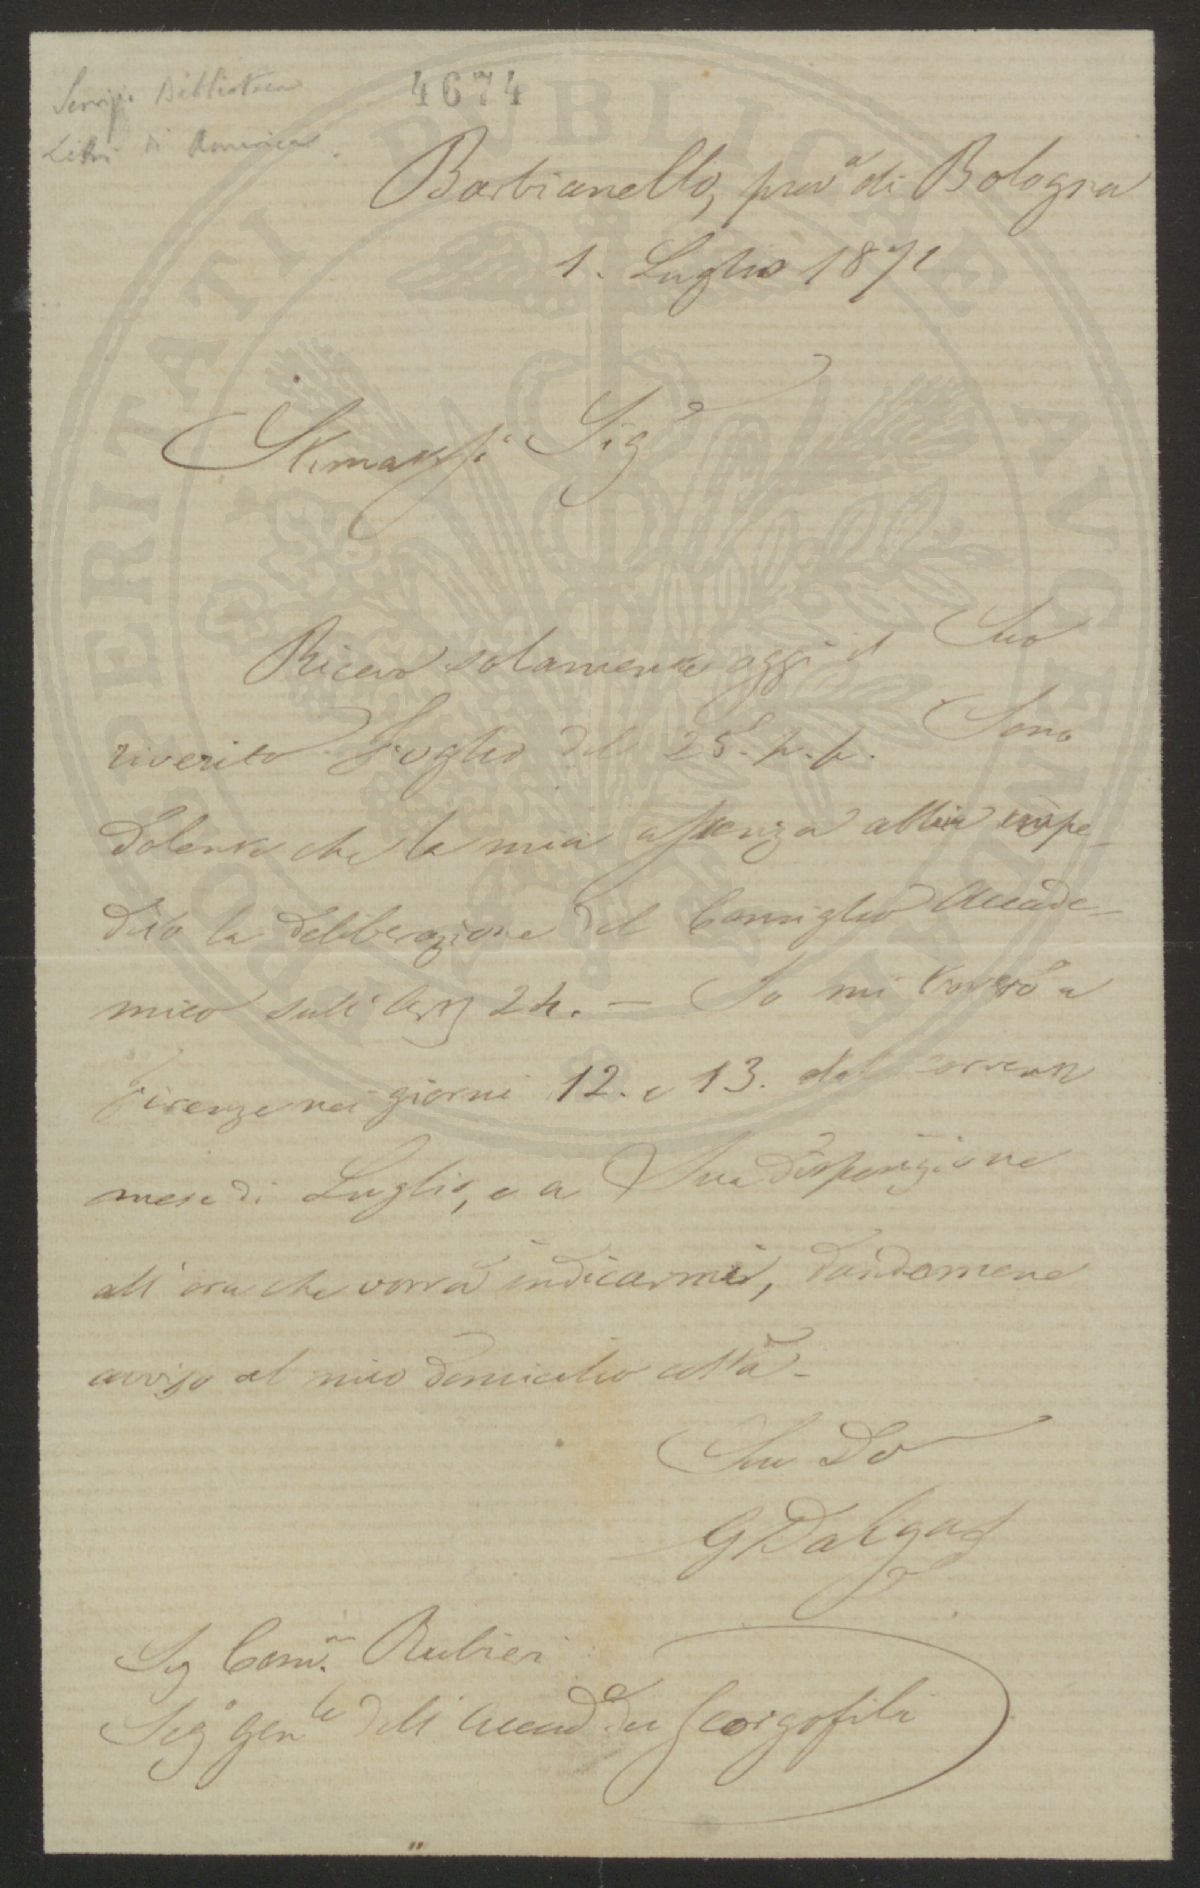 4674
Libri di America.
Barbianello, prov.a di Bologna
1. Luglio 1871
Sig.e
Ricevo solamente oggi il Suo
riverito Foglio del 25. p.p. Sono
dolente che la mia assenza abbia impe-
dito la deliberazione del Consiglio Accade-
mico sull' 24. — Io mi troverò a
Firenze nei giorni 12. e 13. del corrente
mese di Luglio, e a Sua disposizione
all'ora che vorrà indicarmi, dandomene
avviso al mio domicilio costà.
Suo Do
Sig Comm. Rubieri
Seg.o Gen.le dell' Accad. dei Georgofili
PROSPERITATI PUBLICAE AUGENDAE